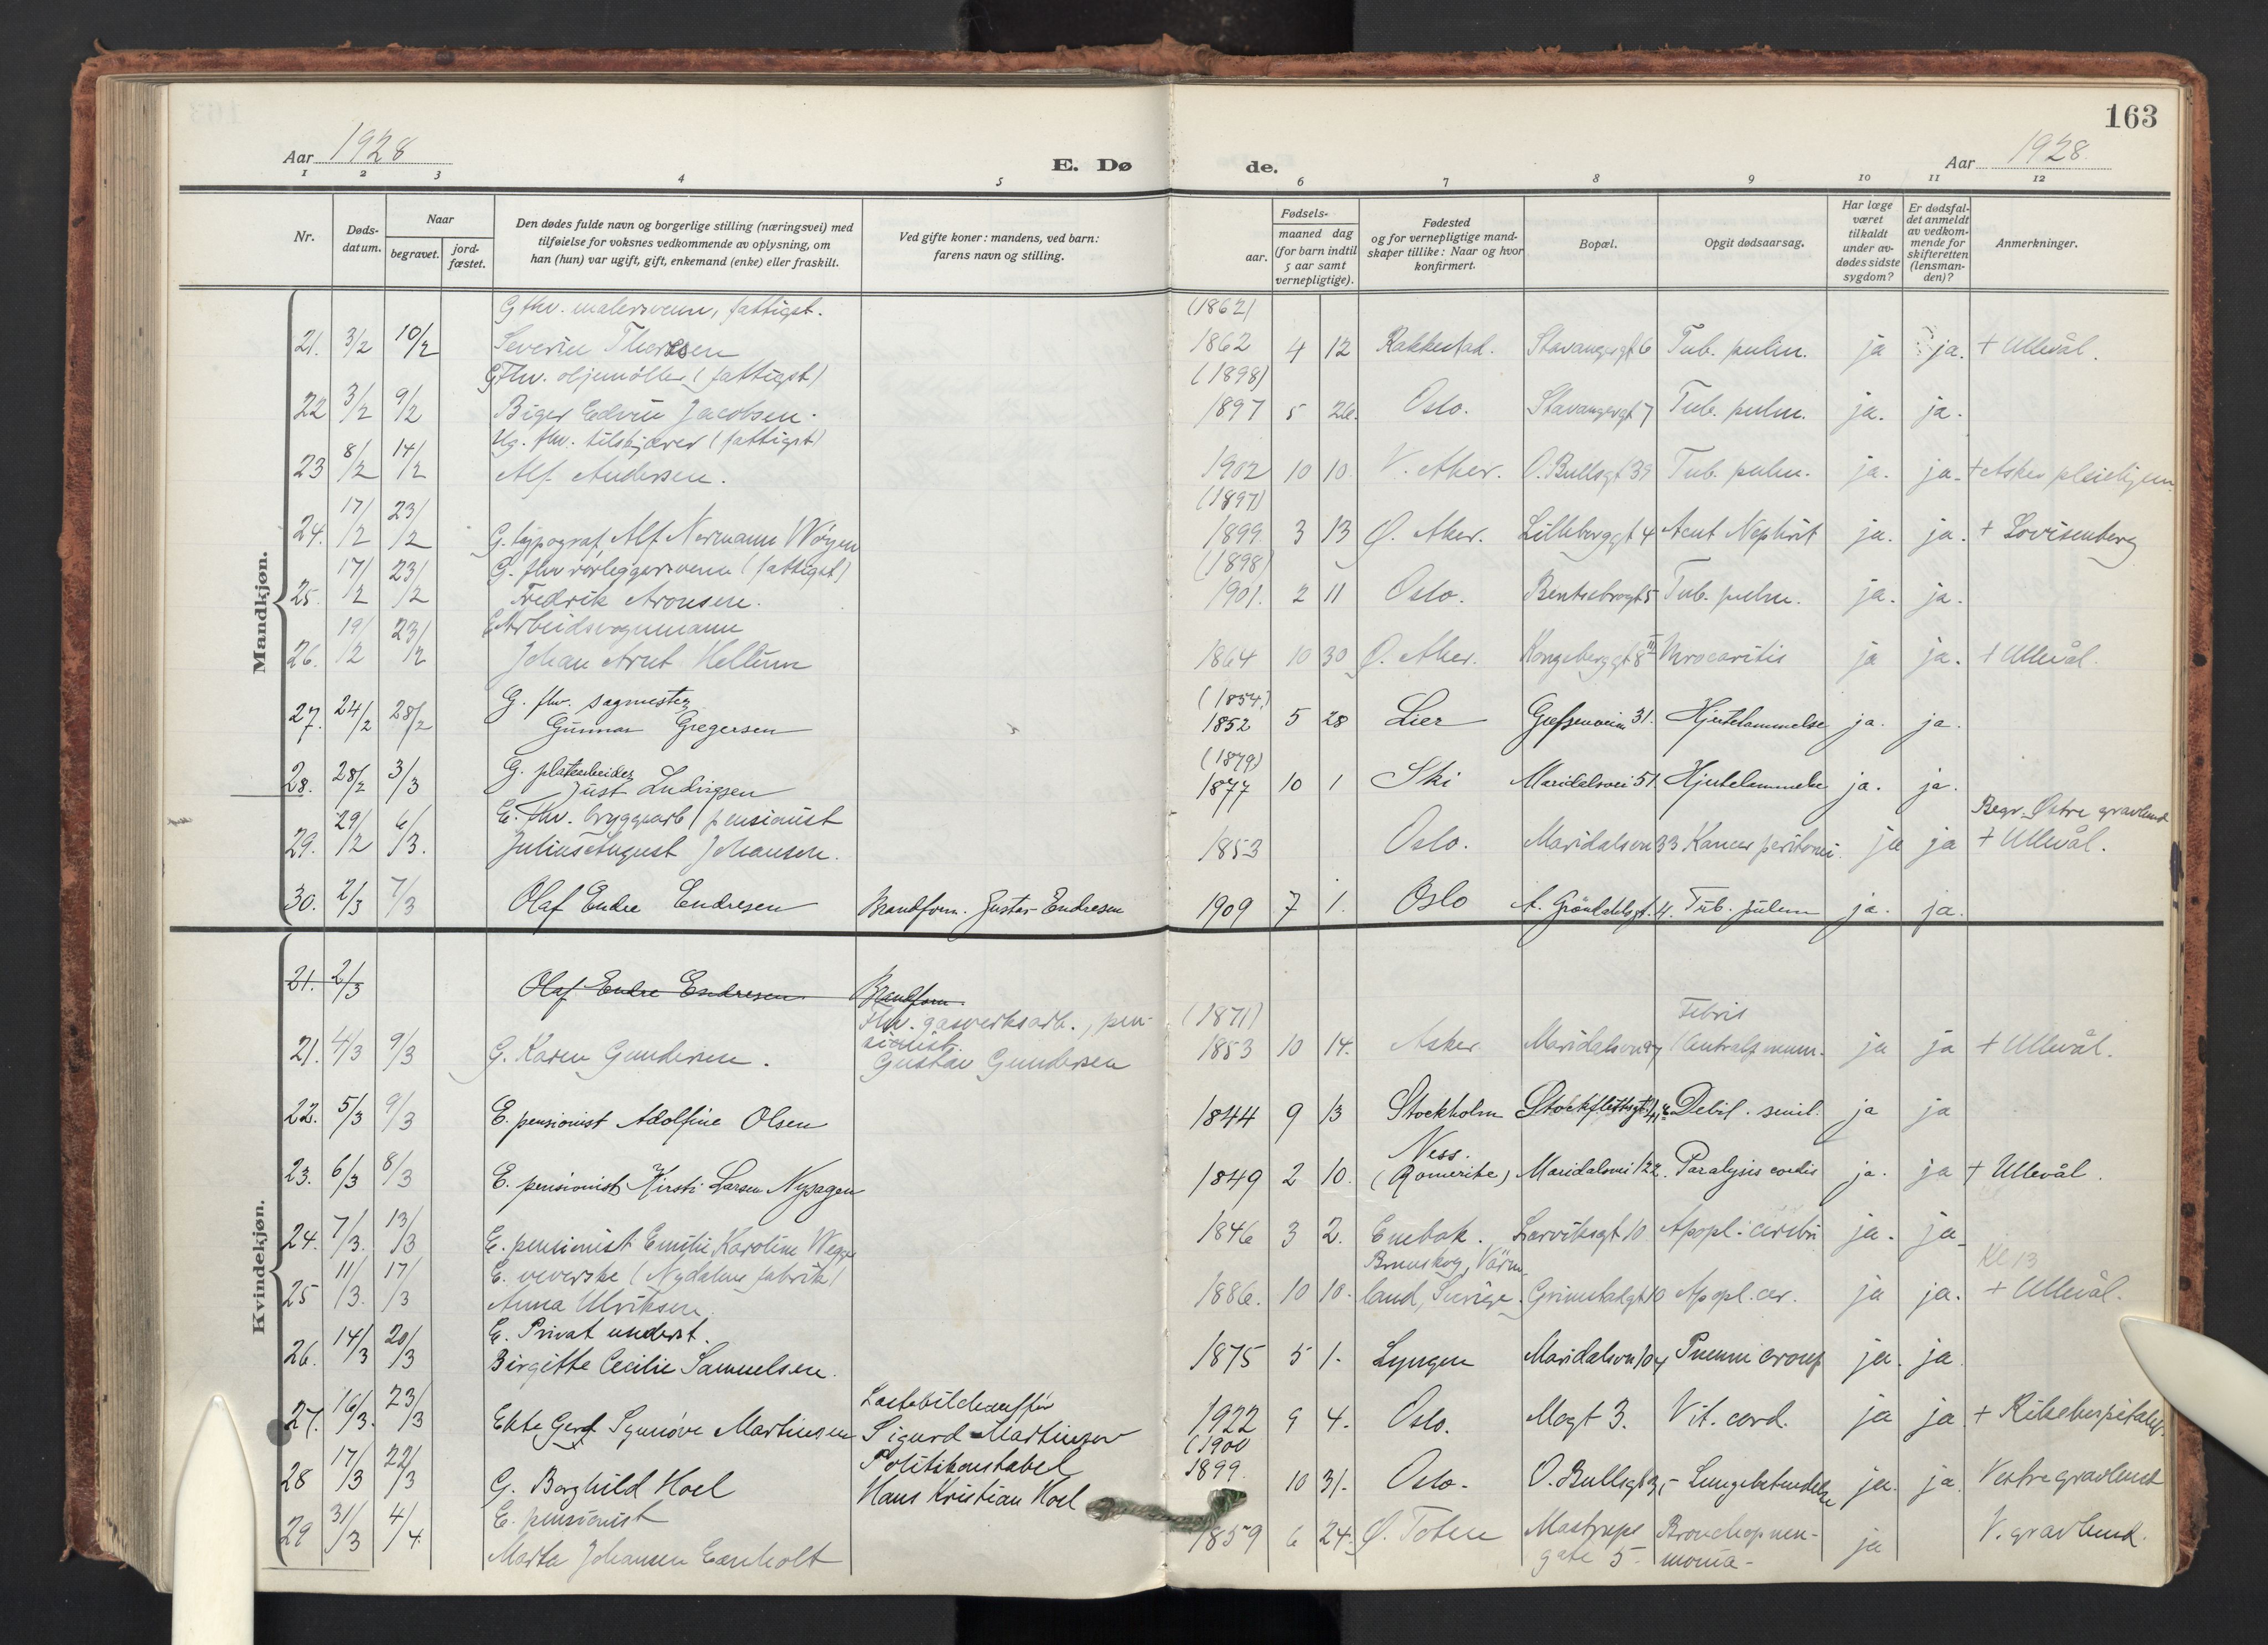 163
Aar 1928
E. Dø de.
Aar 1928.
1 2 3 4 5 6 7 8 9 10 11 12
Nr.
Døds-
datum.
Naar
begravet.
jord-
fæstet.
Den dødes fulde navn og borgerlige stilling (næringsvei) med
tilføielse for voksnes vedkommende av oplysning, om
han (hun) var ugift, gift, enkemand (enke) eller fraskilt.
Ved gifte koner: mandens, ved barn:
farens navn og stilling.
Fødsels-
aar.
maaned dag
(for barn indtil
5 aar samt
vernepligtige).
Fødested
og for vernepligtige mand-
skaper tillike: Naar og hvor
konfirmert.
Bopæl.
Opgit dødsaarsag.
Har læge
været
tilkaldt
under av-
dødes sidste
sygdom?
Er dødsfal-
det anmeldt
av vedkom-
mende for
skifteretten
(lensman-
den)?
Anmerkninger.
Mandkjøn.
G fhv. malersvenn, fattigst. (1862)
21. 3/2 10/2 Severin Thoresen 1862 4 12 Rakkestad. Stavangergt 6 Tub. pulm. ja ja. + Ullevål.
G Fhv. oljemøller (fattigst) (1898)
22 3/2 9/2 Biger Edvin Jacobsen. 1897 5 26. Oslo. Stavangergt 7 Tub. pulm. ja. ja.
Ug. fhv. tilskjærer (fattigst)
23 8/2 14/2 Alf Andersen. 1902 10 10. V. Aker. O. Bullsgt 39 Tub. pulm. ja. ja. + Asker pleiehjem
(1897)
24. 17/2 23/2 G. typograf Alf Normann Wøyen 1899. 3 13 Ø. Aker. Lilleborggt 4 Acut Nephrit ja. ja. + Lovisenberg
G. fhv rørleggersvenn (fattigst) (1898)
25. 17/2 23/2 Fredrik Aronsen. 1901. 2 11 Oslo. Bentsebrogt 5 Tub. pulm. ja. ja.
E Arbeidsvognmann
26. 19/2 23/2 Johan Arnt Hellum 1864 10 30 Ø. Aker. Kongsberggt 8 II ja ja. + Ullevål.
G. fhv. sagmester (1854.)
27. 24/2 28/2 Gunnar Gregersen 1852 5 28 Lier Grefsenveien 31. Hjertelammelse ja. ja.
G. platearbeider (1879)
28. 28/2 3/3 Just Ludvigsen 1877 10 1 Ski Maridalsvei 51. Hjertelammelse ja. ja.
E. Fhv. bryggearb / pensionist Begr. Østre gravlund
29. 29/2 6/3. Julius August Johansen. 1853 Oslo. Maridalsvn 33 Kancer peritonei. ja ja + Ullevål.
30. 2/3 7/3 Olaf Endre Endresen Brandform. Gustav Endresen 1909 7 1. Oslo A. Grøndahlsgt. 4. Tub. pulm ja. ja.
Kvindekjøn.
21. 2/3 Olaf Endre Endresen Brandform.
Fhv. gasverksarb., pen- (1871) Febris
21. 4/3 9/3 G. Karen Gundersen. sionist. Gustav Gundersen 1853 10 14. Asker Maridalsvn ja ja + Ullevål.
22. 5/3 9/3 E. pensionist Adolfine Olsen 1844 9 13 Stockholm Stockflethsgt. Debil. senil. ja ja
Ness.
23. 6/3 8/3 E. pensionist Kirsti Larsen Nysagen 1849 2 10. (Romerike) Maridalsvei 122. Paralysis cordis ja. ja + Ullevål.
24. 7/3. 13/3 E. pensionist Emilie Karoline Wegge 1846 3 2. Enebak. Larviksgt 10 Apopl. cerebri ja. ja
E. veverske (Nydalens fabrik) Brunskog, Värm- Kl 13
25 11/3. 17/3 Anna Ulriksen. 1886. 10 10. land, Sverige. Grimstadgt 10 Apopl. cer. ja ja. + Ullevål.
E. Privat underst.
26. 14/3 20/3 Birgitte Cecilie Samuelsen. 1875 5 1. Lyngen Maridalsvn 104 Pneum croup ja. ja
Lastebilchauffør
27. 16/3. 23/3 Ekte Gerd Synnøve Martinsen Sigurd Martinsen 1922 9 4. Oslo. Mogt 3. Vit. cord. ja ja + Rikshospitalet.
Politikonstabel (1900
28 17/3 22/3 G. Borghild Hoel Hans Kristian Hoel 1899. 10 31. Oslo. O. Bullsgt 35 Lungebetendelse ja. ja. Vestre gravlund
E. pensionist
29 31/3 4/4. Marta Johansen Eenholt 1859 6 24. Ø. Toten gate 5. Bronchopneu-
monia ja V. gravlund.